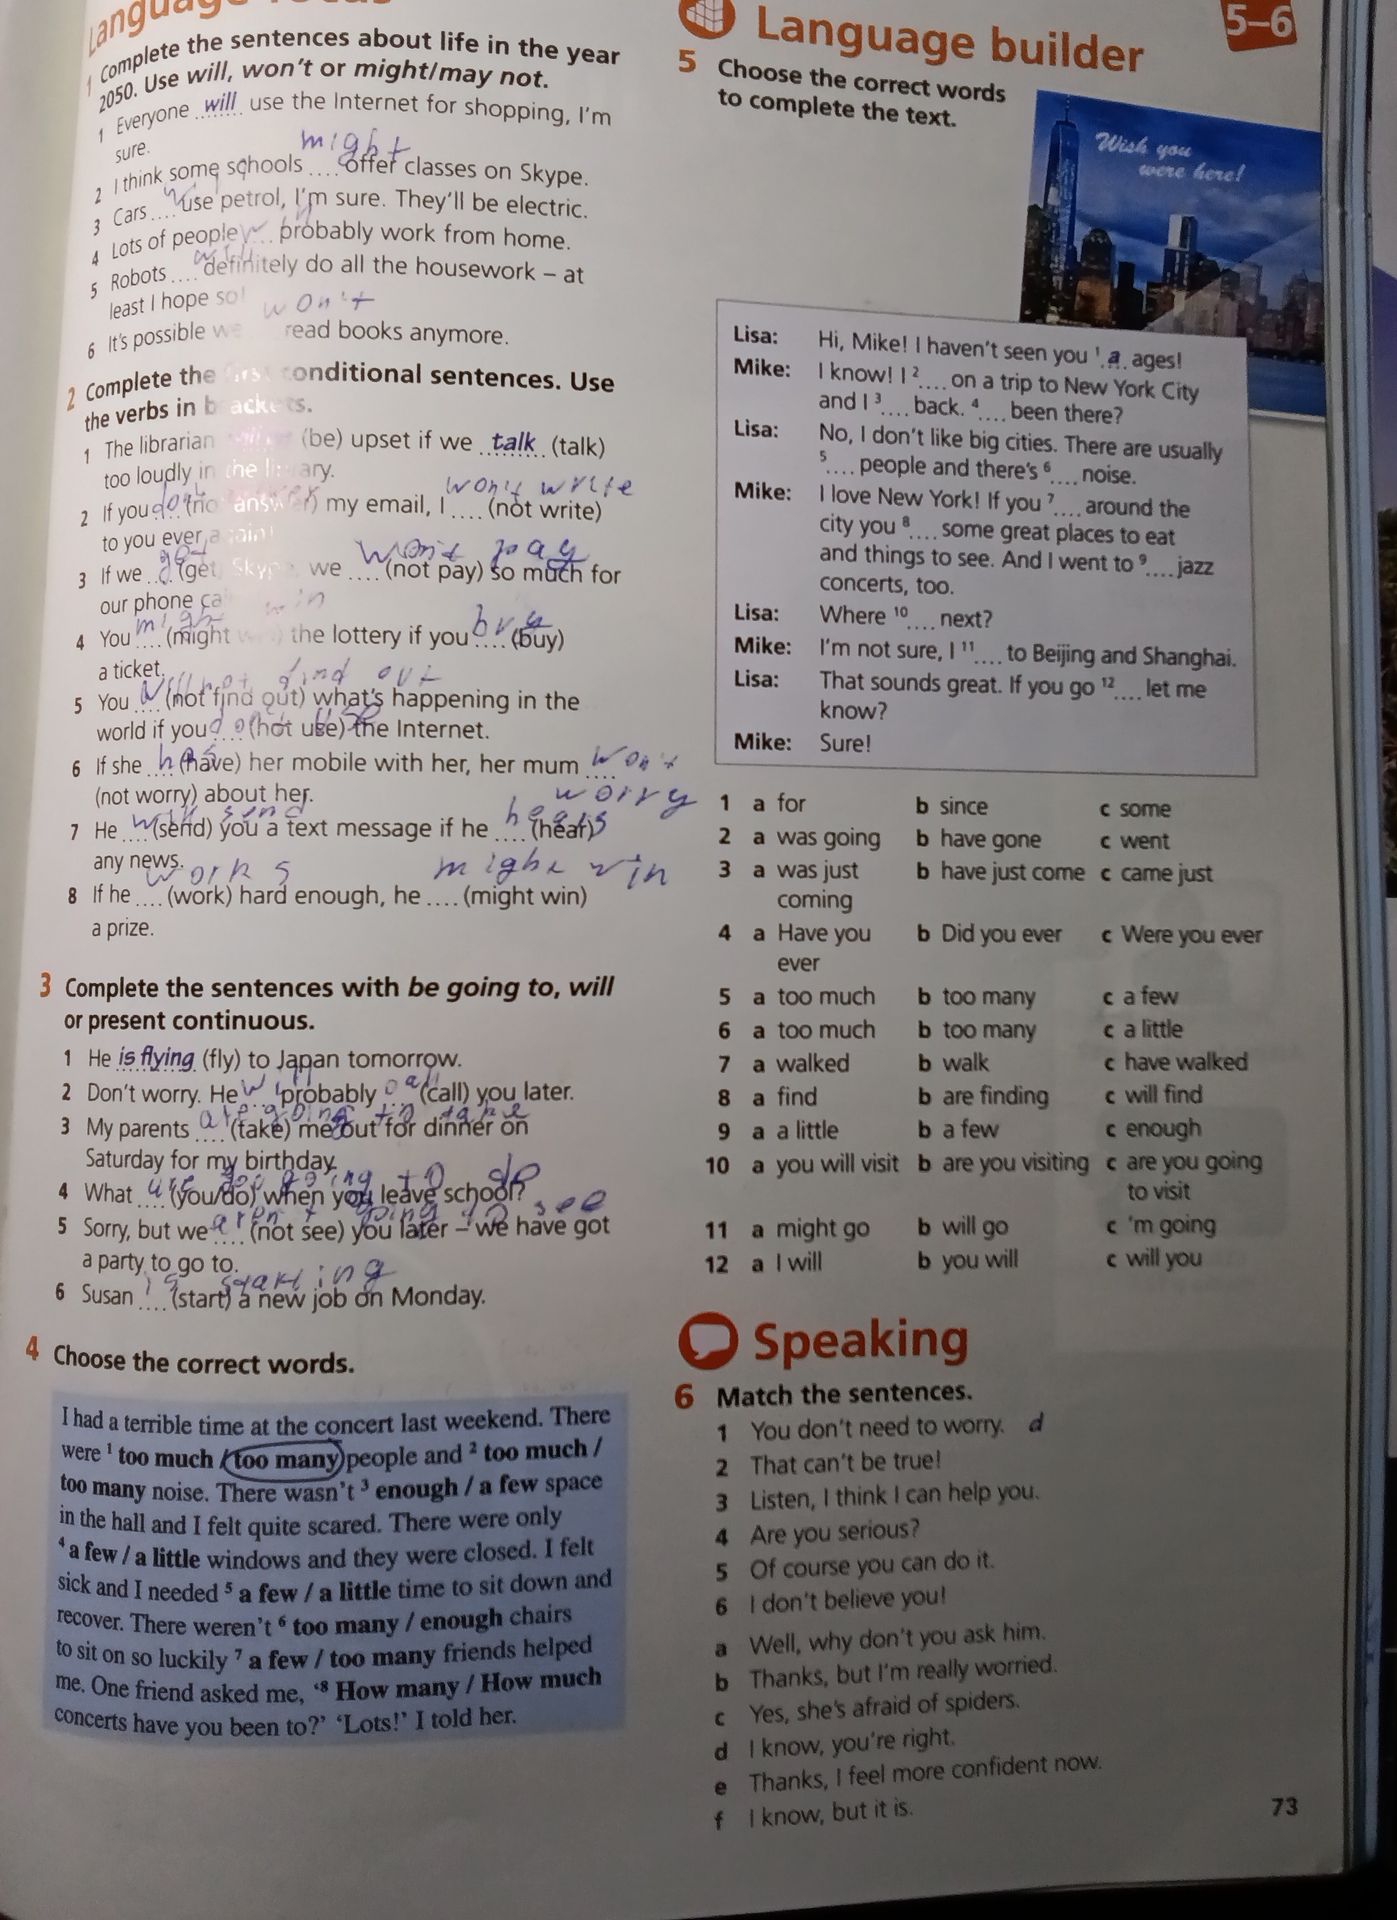 Language focus
1 Complete the sentences about life in the year
2050. Use will, won't or might/may not.
1 Everyone will use the Internet for shopping, I'm
sure.
might
2 I think some schools .... offer classes on Skype.
3 Cars .... use petrol, I'm sure. They'll be electric.
4 Lots of people .... probably work from home.
will
5 Robots .... definitely do all the housework – at
least I hope so!
won't
6 It's possible we read books anymore.
2 Complete the first conditional sentences. Use
the verbs in brackets.
1 The librarian (be) upset if we talk (talk)
too loudly in the library.
won't write
2 If you .... answer) my email, I .... (not write)
to you ever again!
get won't pay
3 If we .... (get) Skype, we .... (not pay) so much for
our phone
might win buy
4 You .... (might win) the lottery if you .... (buy)
a ticket.
will not find out
5 You .... (not find out) what's happening in the
world if you .... (not use) the Internet.
has won't
6 If she .... (have) her mobile with her, her mum ....
(not worry) about her.
worry
will send hears
7 He .... (send) you a text message if he .... (hear)
any news.
works might win
8 If he .... (work) hard enough, he .... (might win)
a prize.
3 Complete the sentences with be going to, will
or present continuous.
1 He is flying (fly) to Japan tomorrow.
will call
2 Don't worry. He .... probably .... (call) you later.
are going to take
3 My parents .... (take) me out for dinner on
Saturday for my birthday.
are you going to do
4 What .... (you/do) when you leave school?
aren't going to see
5 Sorry, but we .... (not see) you later – we have got
a party to go to.
is starting
6 Susan .... (start) a new job on Monday.
4 Choose the correct words.
I had a terrible time at the concert last weekend. There
were 1 too much / too many people and 2 too much /
too many noise. There wasn't 3 enough / a few space
in the hall and I felt quite scared. There were only
4 a few / a little windows and they were closed. I felt
sick and I needed 5 a few / a little time to sit down and
recover. There weren't 6 too many / enough chairs
to sit on so luckily 7 a few / too many friends helped
me. One friend asked me, '8 How many / How much
concerts have you been to?' 'Lots!' I told her.
Language builder
5–6
5 Choose the correct words
to complete the text.
Wish you
were here!
Lisa: Hi, Mike! I haven't seen you 1 a ages!
Mike: I know! I 2 .... on a trip to New York City
and I 3 .... back. 4 .... been there?
Lisa: No, I don't like big cities. There are usually
5 .... people and there's 6 .... noise.
Mike: I love New York! If you 7 .... around the
city you 8 .... some great places to eat
and things to see. And I went to 9 .... jazz
concerts, too.
Lisa: Where 10 .... next?
Mike: I'm not sure, I 11 .... to Beijing and Shanghai.
Lisa: That sounds great. If you go 12 .... let me
know?
Mike: Sure!
1 a for b since c some
2 a was going b have gone c went
3 a was just b have just come c came just
coming
4 a Have you b Did you ever c Were you ever
ever
5 a too much b too many c a few
6 a too much b too many c a little
7 a walked b walk c have walked
8 a find b are finding c will find
9 a a little b a few c enough
10 a you will visit b are you visiting c are you going
to visit
11 a might go b will go c 'm going
12 a I will b you will c will you
Speaking
6 Match the sentences.
1 You don't need to worry. d
2 That can't be true!
3 Listen, I think I can help you.
4 Are you serious?
5 Of course you can do it.
6 I don't believe you!
a Well, why don't you ask him.
b Thanks, but I'm really worried.
c Yes, she's afraid of spiders.
d I know, you're right.
e Thanks, I feel more confident now.
f I know, but it is.
73